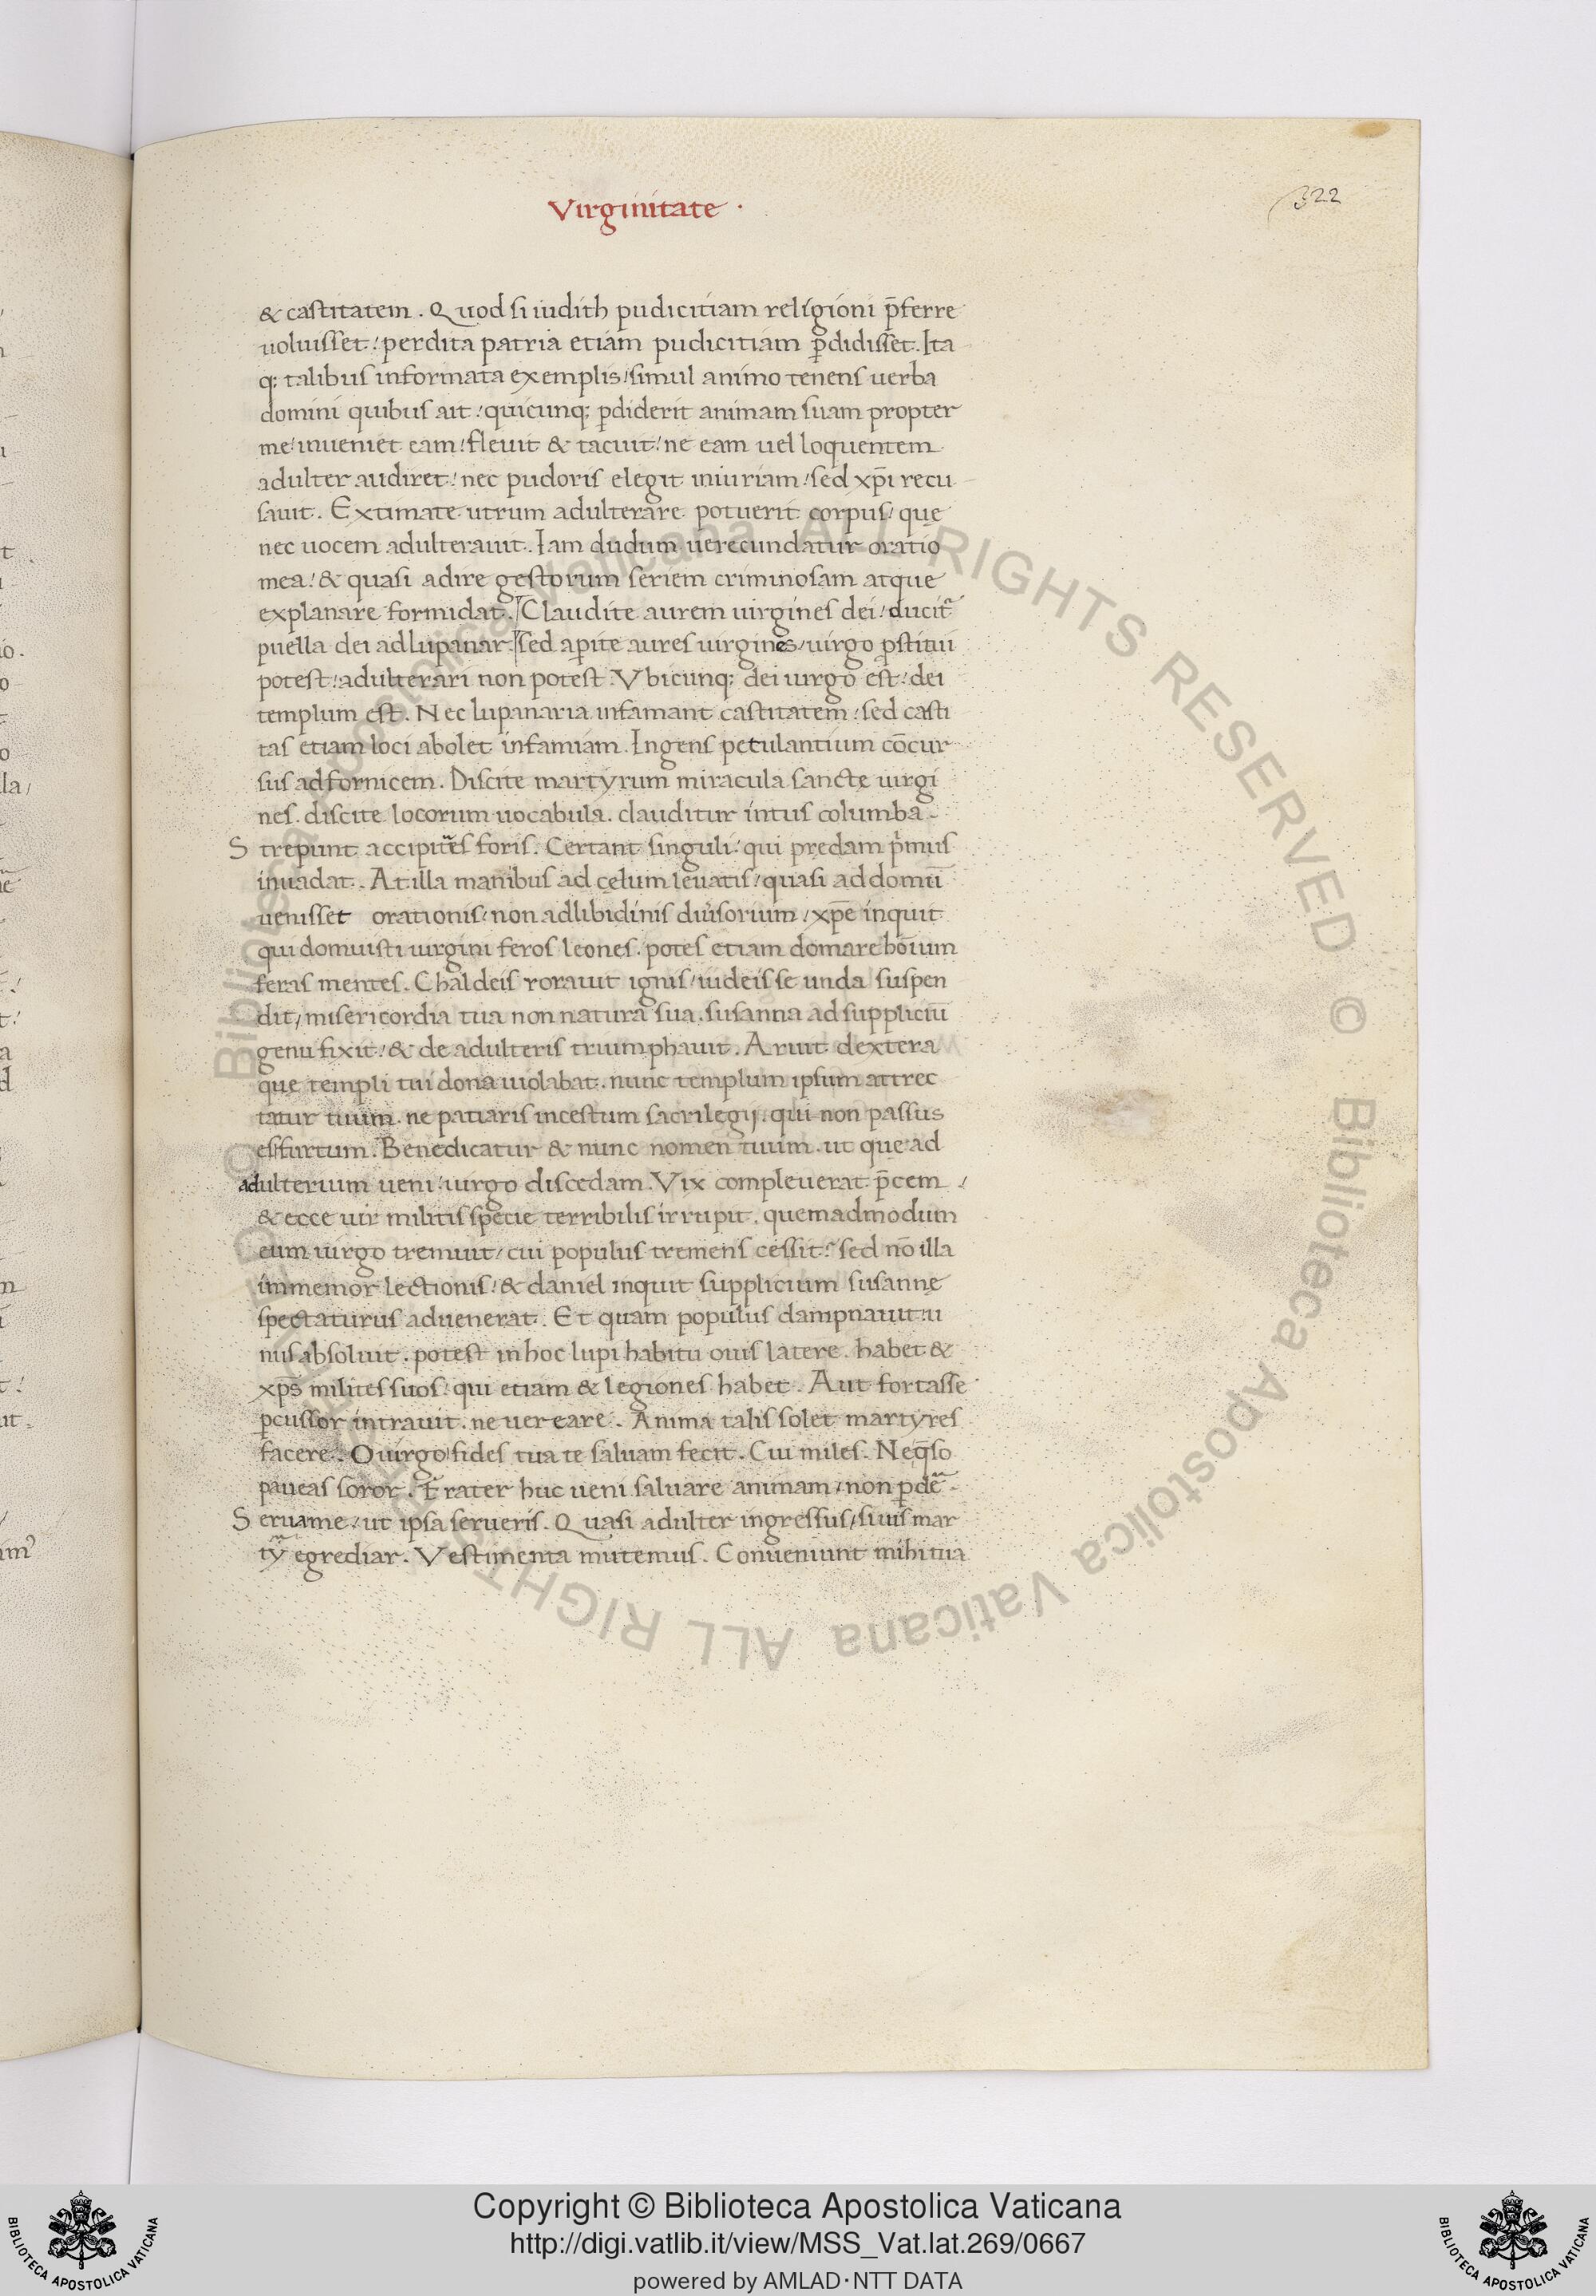 Virginitate ·
322
& castitatem . Quod si iudith pudicitiam religioni p̄ferre
uoluisset / perdita patria etiam pudicitiam ꝑdidisset . Ita
q; talibus informata exemplis / simul animo tenens uerba
domini quibus ait / quicunq; ꝑdiderit animam suam propter
me / inueniet eam / fleuit & tacuit / ne eam uel loquentem
adulter audiret / nec pudoris elegit iniuriam / sed xp̄i recu
sauit . Extimate utrum adulterare potuerit corpus / que
nec uocem adulterauit . Iam dudum uerecundatur oratio
mea / & quasi adire gestorum seriem criminosam atque
explanare formidat . Claudite aurem uirgines dei / ducit᷑
puella dei ad lupanar . sed aꝑite aures uirgines / uirgo ꝓstitui
potest / adulterari non potest . Vbicunq; dei uirgo est / dei
templum est . Nec lupanaria infamant castitatem / sed casti
tas etiam loci abolet infamiam . Ingens petulantium cōcur
sus ad fornicem . Discite martyrum miracula sancte uirgi
nes . discite locorum uocabula . clauditur intus columba .
S trepunt accipit᷑es foris . Certant singuli / qui predam p̍mus
inuadat . At illa manibus ad cęlum leuatis / quasi ad domū
uenisset orationis / non ad libidinis diuisorium / xp̄e inquit
qui domuisti uirgini feros leones . potes etiam domare hōium
feras mentes . Chaldeis rorauit ignis / iudeis se unda suspen
dit / misericordia tua non natura sua . susanna ad suppliciū
genu fixit / & de adulteris triumphauit . Aruit dextera
que templi tui dona uiolabat . nunc templum ipsum attrec
tatur tuum . ne patiaris incestum sacrilegij . qui non passus
es furtum . Benedicatur & nunc nomen tuum . ut que ad
adulterium ueni / uirgo discedam . Vix compleuerat p̄cem /
& ecce uir militis specie terribilis irrupit . quemadmodum
eum uirgo tremuit / cui populus tremens cessit / sed nō illa
immemor lectionis / & daniel inquit supplicium susannę
spectaturus aduenerat . Et quam populus dampnauit / u
nus absoluit . potest in hoc lupi habitu ouis latere . habet &
xp̄s milites suos / qui etiam & legiones habet . Aut fortasse
ꝑcussor intrauit . ne uereare . Anima talis solet martyres
facere . O uirgo / fides tua te saluam fecit . Cui miles . Ne q̄so
paueas soror . Frater huc ueni saluare animam / non ꝑde᷑ .
S erua me / ut ipsa serueris . Quasi adulter ingressus / si uis mar
ty᷑ egrediar . Vestimenta mutemus . Conueniunt mihi tua
© Biblioteca Apostolica Vaticana ALL RIGHTS RESERVED © Biblioteca Apostolica Vaticana ALL RIGHTS RESERVED
Copyright © Biblioteca Apostolica Vaticana
http://digi.vatlib.it/view/MSS_Vat.lat.269/0667
powered by AMLAD·NTT DATA
BIBLIOTECA APOSTOLICA VATICANA
BIBLIOTECA APOSTOLICA VATICANA